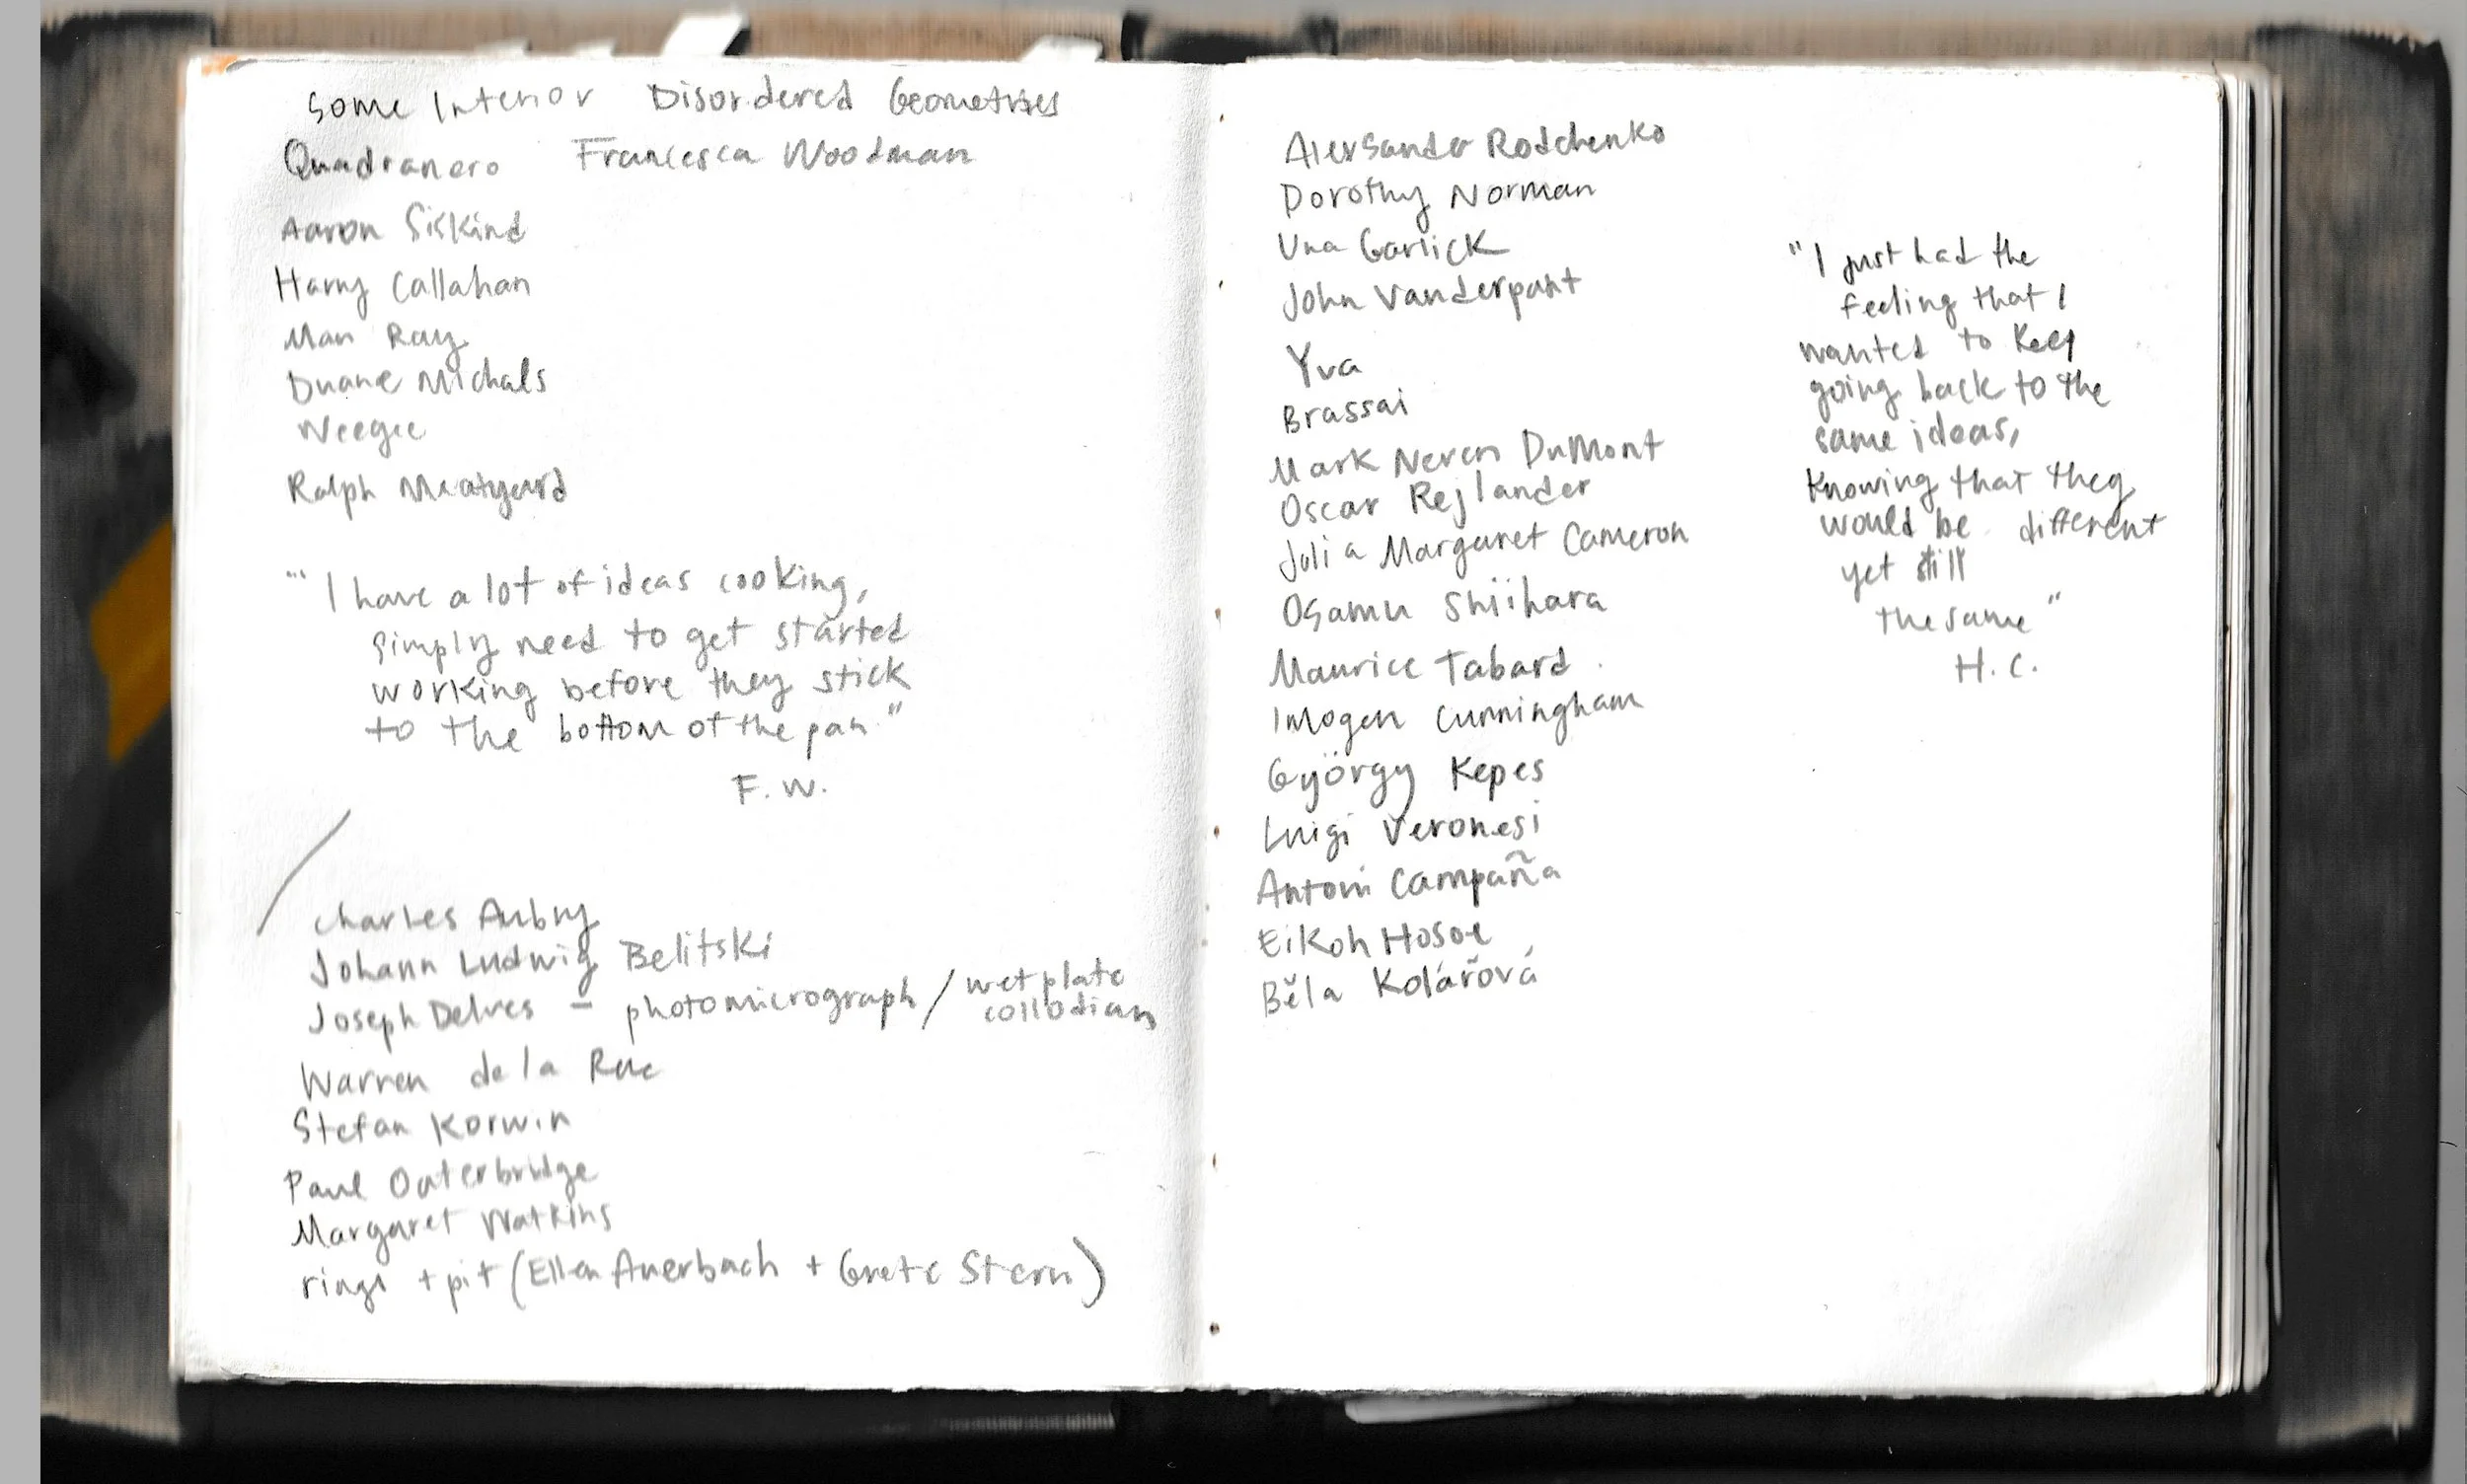 Some Interior Disordered Geometries
Quadranero Francesca Woodman
Aaron Siskind
Harry Callahan
Man Ray
Duane Michals
Weegee
Ralph Meatyard
"I have a lot of ideas cooking,
simply need to get started
working before they stick
to the bottom of the pan."
F.W.
Charles Aubry
Johann Ludwig Belitski
Joseph Delves – photomicrograph / wet plate
collodian
Warren de la Rue
Stefan Korwin
Paul Outerbridge
Margaret Watkins
ringl + pit (Ellen Auerbach + Grete Stern)
Alexsander Rodchenko
Dorothy Norman
Una Garlick
John Vanderpant
Yva
Brassai
Mark Neven DuMont
Oscar Rejlander
Julia Margaret Cameron
Osamu Shiihara
Maurice Tabard
Imogen Cunningham
György Kepes
Luigi Veronesi
Antoni Campañà
Eikoh Hosoe
Běla Kolářová
"I just had the
feeling that I
wanted to keep
going back to the
same ideas,
knowing that they
would be different
yet still
the same"
H.C.